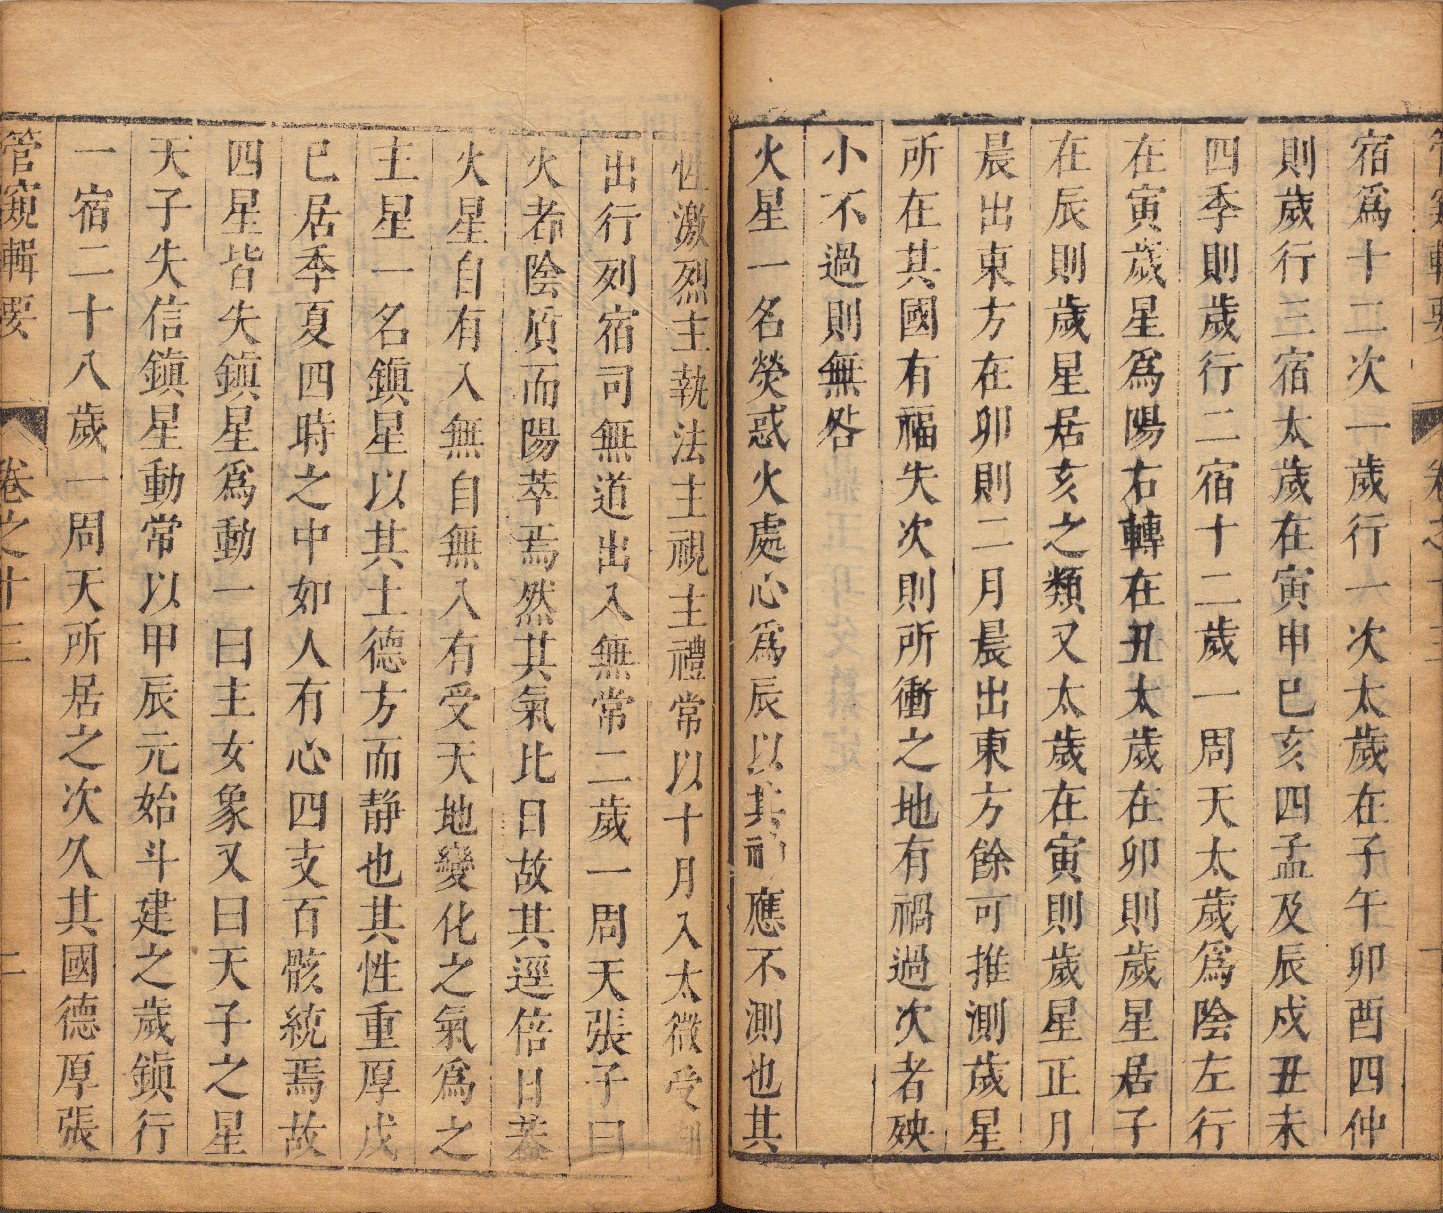 宿爲十二次一歲行一次太歲在子午卯酉四仲
則歲行三宿太歲在寅申巳亥四孟及辰戌丑未
四季則歲行二宿十二歲一周天太歲爲陰左行
在寅歲星爲陽右轉在丑太歲在卯則歲星居子
在辰則歲星居亥之類又太歲在寅則歲星正月
晨出東方在卯則二月晨出東方餘可推測歲星
所在其國有福失次則所衝之地有禍過次者殃
小不過則無咎
火星一名熒惑火處心爲辰以其 應不測也其
性激烈主執法主視主禮常以十月入太微受制
出行列宿司無道出入無常二歲一周天張子曰
火者陰質而陽萃焉然其氣比日故其遲倍日葢
火星自有入無自無入有受天地變化之氣爲之
土星一名鎮星以其土德方而靜也其性重厚戊
巳居季夏四時之中如人有心四支百骸統焉故
四星皆失鎮星爲動一曰主女象又曰天子之星
天子失信鎮星動常以甲辰元始斗建之歲鎮行
一宿二十八歲一周天所居之次久其國德厚張
管窺輯要 卷之十三 二